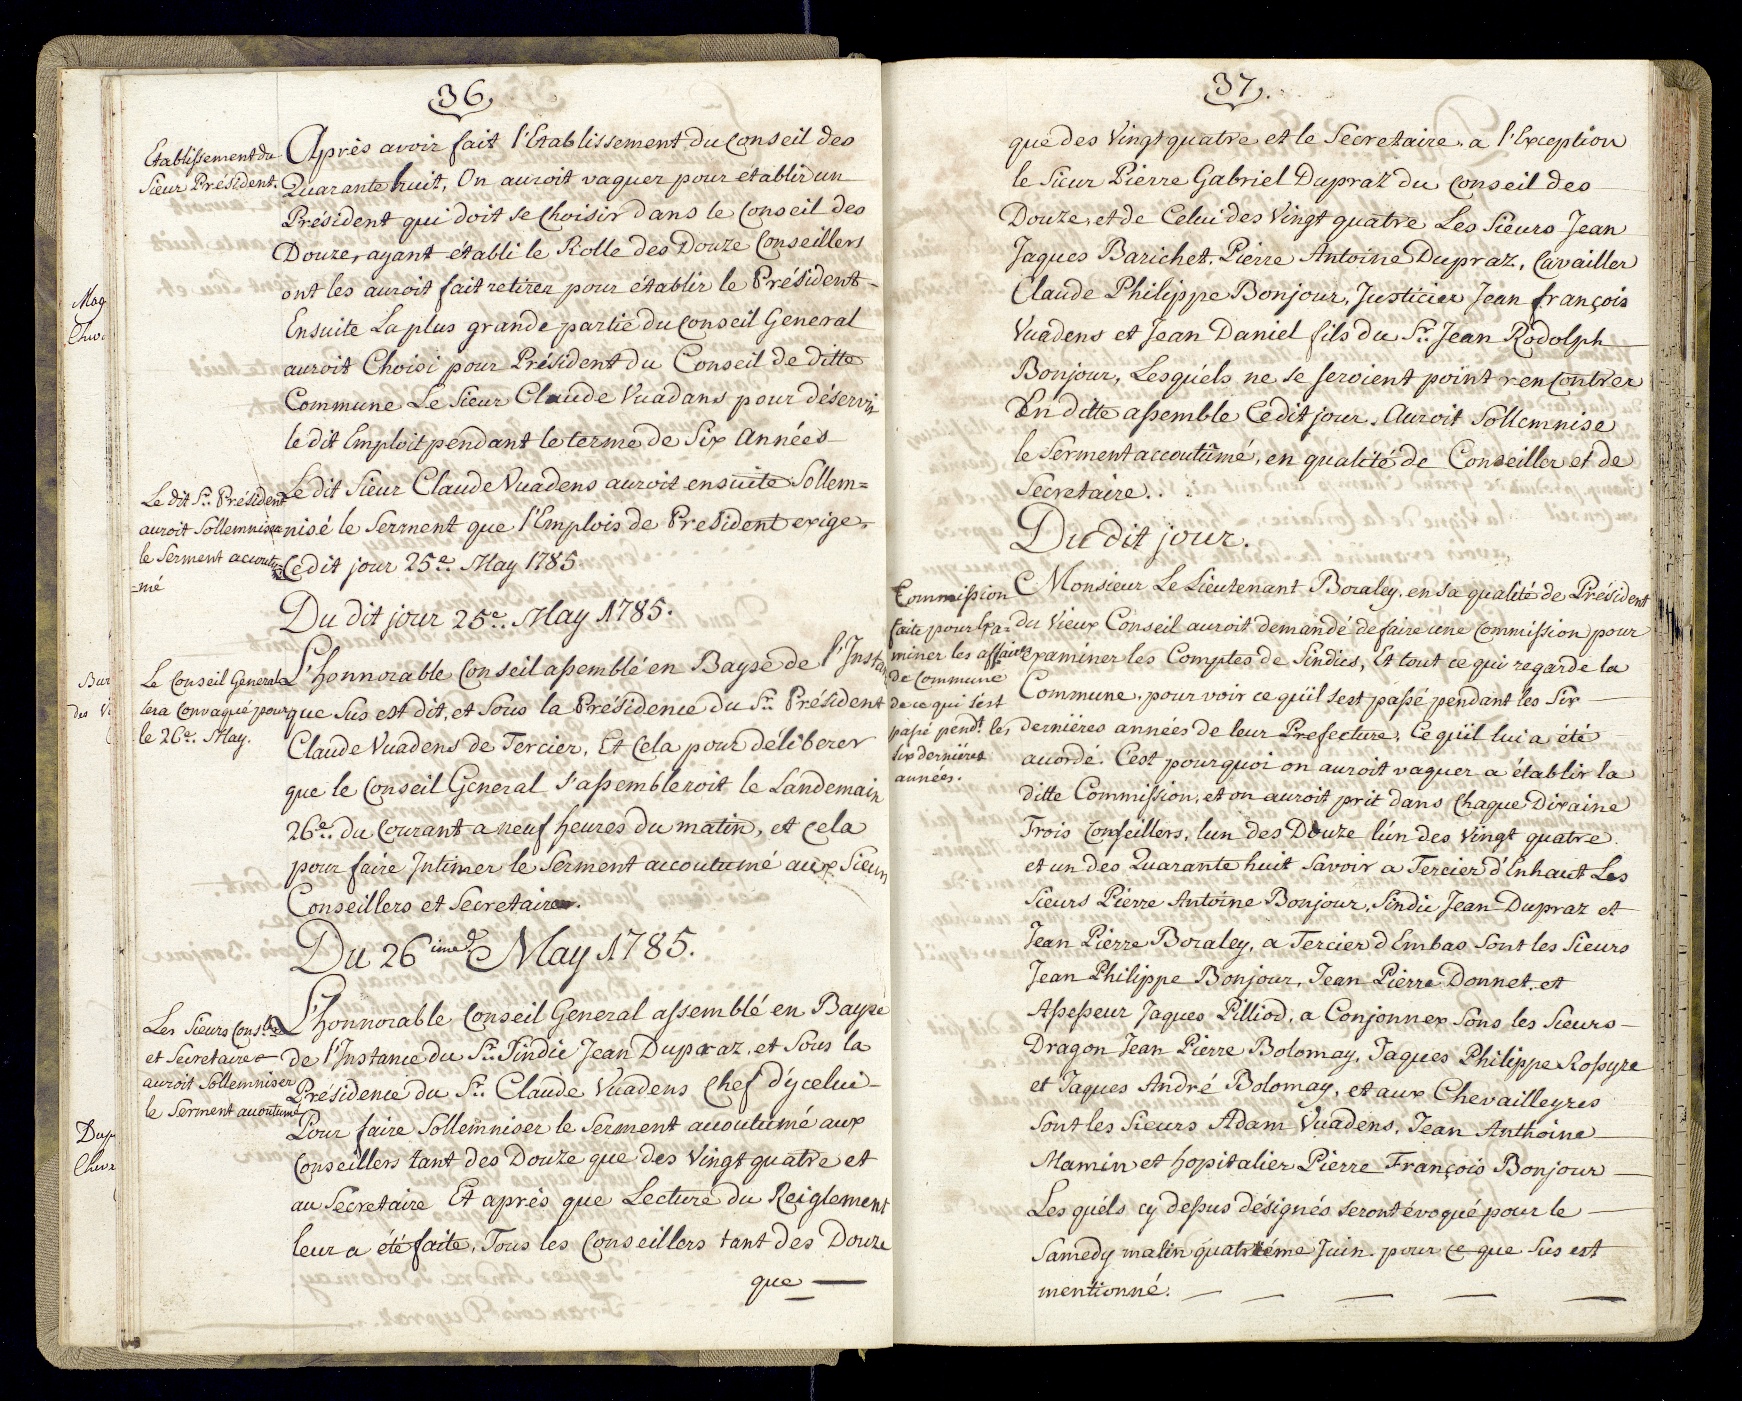 36
Etablissement du
Sieur Président.
Après avoir fait l'Etablissement du Conseil des
Quarante huit, On auroit vaquer pour établir un
Président qui doit se Choisir dans le Conseil des
Douze, ayant établi le Rolle des Douze Conseillers
ont les auroit fait retirer pour établir le Président
Ensuite La plus grande partie du Conseil General
auroit Choisi pour Président du Conseil de ditte
Commune Le Sieur Claude Vuadans pour déservir
le dit Emploit pendant le terme de Six Années
Le dit Sr. Président
auroit Sollemniser
le Serment acoutu
-mé
Le dit Sieur Claude Vuadens auroit ensuite Sollem=
nisé le Serment que l'Emplois de President exige,
Cédit jour 25e. May 1785
Du dit jour 25e. May 1785.
Le Conseil General
sera Convaqué pour
le 26e. May.
L'honnorable Conseil assemblé en Bayse de l'Instan
que Sus est dit, et Sous la Présidence du Sr. Président
Claude Vuadens de Tercier, Et Cela pour déliberer
que le Conseil General S'assembleroit le Landemain
26e. du Courant a neuf heures du matin, et cela
pour faire Intimer le Serment acoutumé aux Sieurs
Conseillers et Secretaire.
Du 26ime. May 1785.
Les Sieurs Conslrs
et Secretaire
auroit Sollemniser
le Serment acoutumé
L'honnorable Conseil General assemblé en Bayse
de l'Instance du Sr. Sindic Jean Dupraz, et Sous la
Présidence du Sr. Claude Vuadens Chef d'ycelui
Pour faire Sollemniser le Serment acoutumé aux
Conseillers tant des Douze que des Vingt quatre et
au Secretaire Et aprés que Lecture du Reiglement
leur a été faite, Tous les Conseillers tant des Douze
que
Mag
Chev
Bur
des V
Dup
Chev
37.
que des Vingt quatre et le Secretaire, a l'Exception
le Sieur Pierre Gabriel Dupraz du Conseil des
Douze, et de Celui des Vingt quatre Les Sieurs Jean
Jaques Barichet, Pierre Antoine Dupraz, Cavailler
Claude Philippe Bonjour, Justicier Jean françois
Vuadens et Jean Daniel fils du Sr. Jean Rodolph
Bonjour, Lesquéls ne se seroient point rencontrer
En ditte assemble Cedit jour, Auroit Sollemnise
le Serment accoutumé, en qualité de Conseiller et de
Secretaire.
Du dit jour.
Commission
faite pour Exa-
miner les affaires
de Commune
de ce qui s'est
passé pendt. les
six derniéres
années.
Monsieur Le Lieutenant Boraley, en sa qualité de Président
du Vieux Conseil auroit demandé de faire une Commission pour
examiner les Comptes de Sindics, Et tout ce qui regarde la
Commune, pour voir ce qu'il s'est passé pendant les Six
derniéres années de leur Prefecture, Ce qu'il lui a été
acordé. C'est pourquoi on auroit vaquer a établir la
ditte Commission, et on auroit prit dans Chaque Diraine
Trois Conseillers, lun des Douze lún des Vingt quatre
et un des Quarante huit Savoir a Tercier d'Enhaut Les
Sieurs Pierre Antoine Bonjour, Sindic Jean Dupraz et
Jean Pierre Boraley, a Tercier d'Embas Sont les Sieurs
Jean Philippe Bonjour, Jean Pierre Donnet, et
Assesseur Jaques Pilliod, a Conjonnex Sons les Sieurs
Dragon Jean Pierre Bolomay, Jaques Philippe Rossyre
et Jaques André Bolomay, et aux Chevailleyres
Sont les Sieurs Adam Vuadens, Jean Anthoine
Mamin et hopitalier Pierre François Bonjour
Les quéls cy dessus désignés seront évoqué pour le
Samedy matin quatriéme Juin pour ce que Sus est
mentionné.